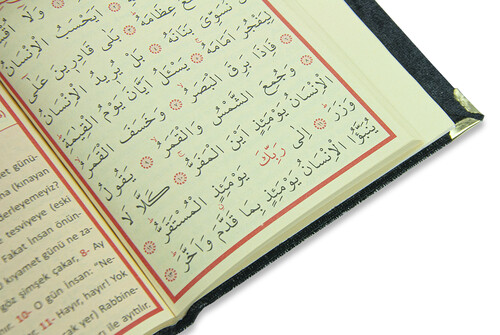 اَيَحْسَبُ الْاِنْسَانُ
عِظَامَهُ بَلٰى قَادِرِينَ عَلٰٓى
نُسَوِّىَ بَنَانَهُ بَلْ يُرِيدُ الْاِنْسَانُ
لِيَفْجُرَ اَمَامَهُ يَسْـَٔلُ اَيَّانَ يَوْمُ الْقِيٰمَةِ
فَاِذَا بَرِقَ الْبَصَرُ وَخَسَفَ الْقَمَرُ
وَجُمِعَ الشَّمْسُ وَالْقَمَرُ يَقُولُ
الْاِنْسَانُ يَوْمَئِذٍ اَيْنَ الْمَفَرُّ كَلَّا لَا
وَزَرَ اِلٰى رَبِّكَ يَوْمَئِذٍ الْمُسْتَقَرُّ
يُنَبَّؤُا الْاِنْسَانُ يَوْمَئِذٍ بِمَا قَدَّمَ وَاَخَّرَ
(kınayan
derleyemeyiz?
tesviyeye (eski
Fakat insan önün-
kıyamet günü ne za-
göz şimşek çakar, 8- Ay
10- O gün insan: "Ne-
11- Hayır, hayır! Yok
yer) Rabbine-
ile ayıtılır.